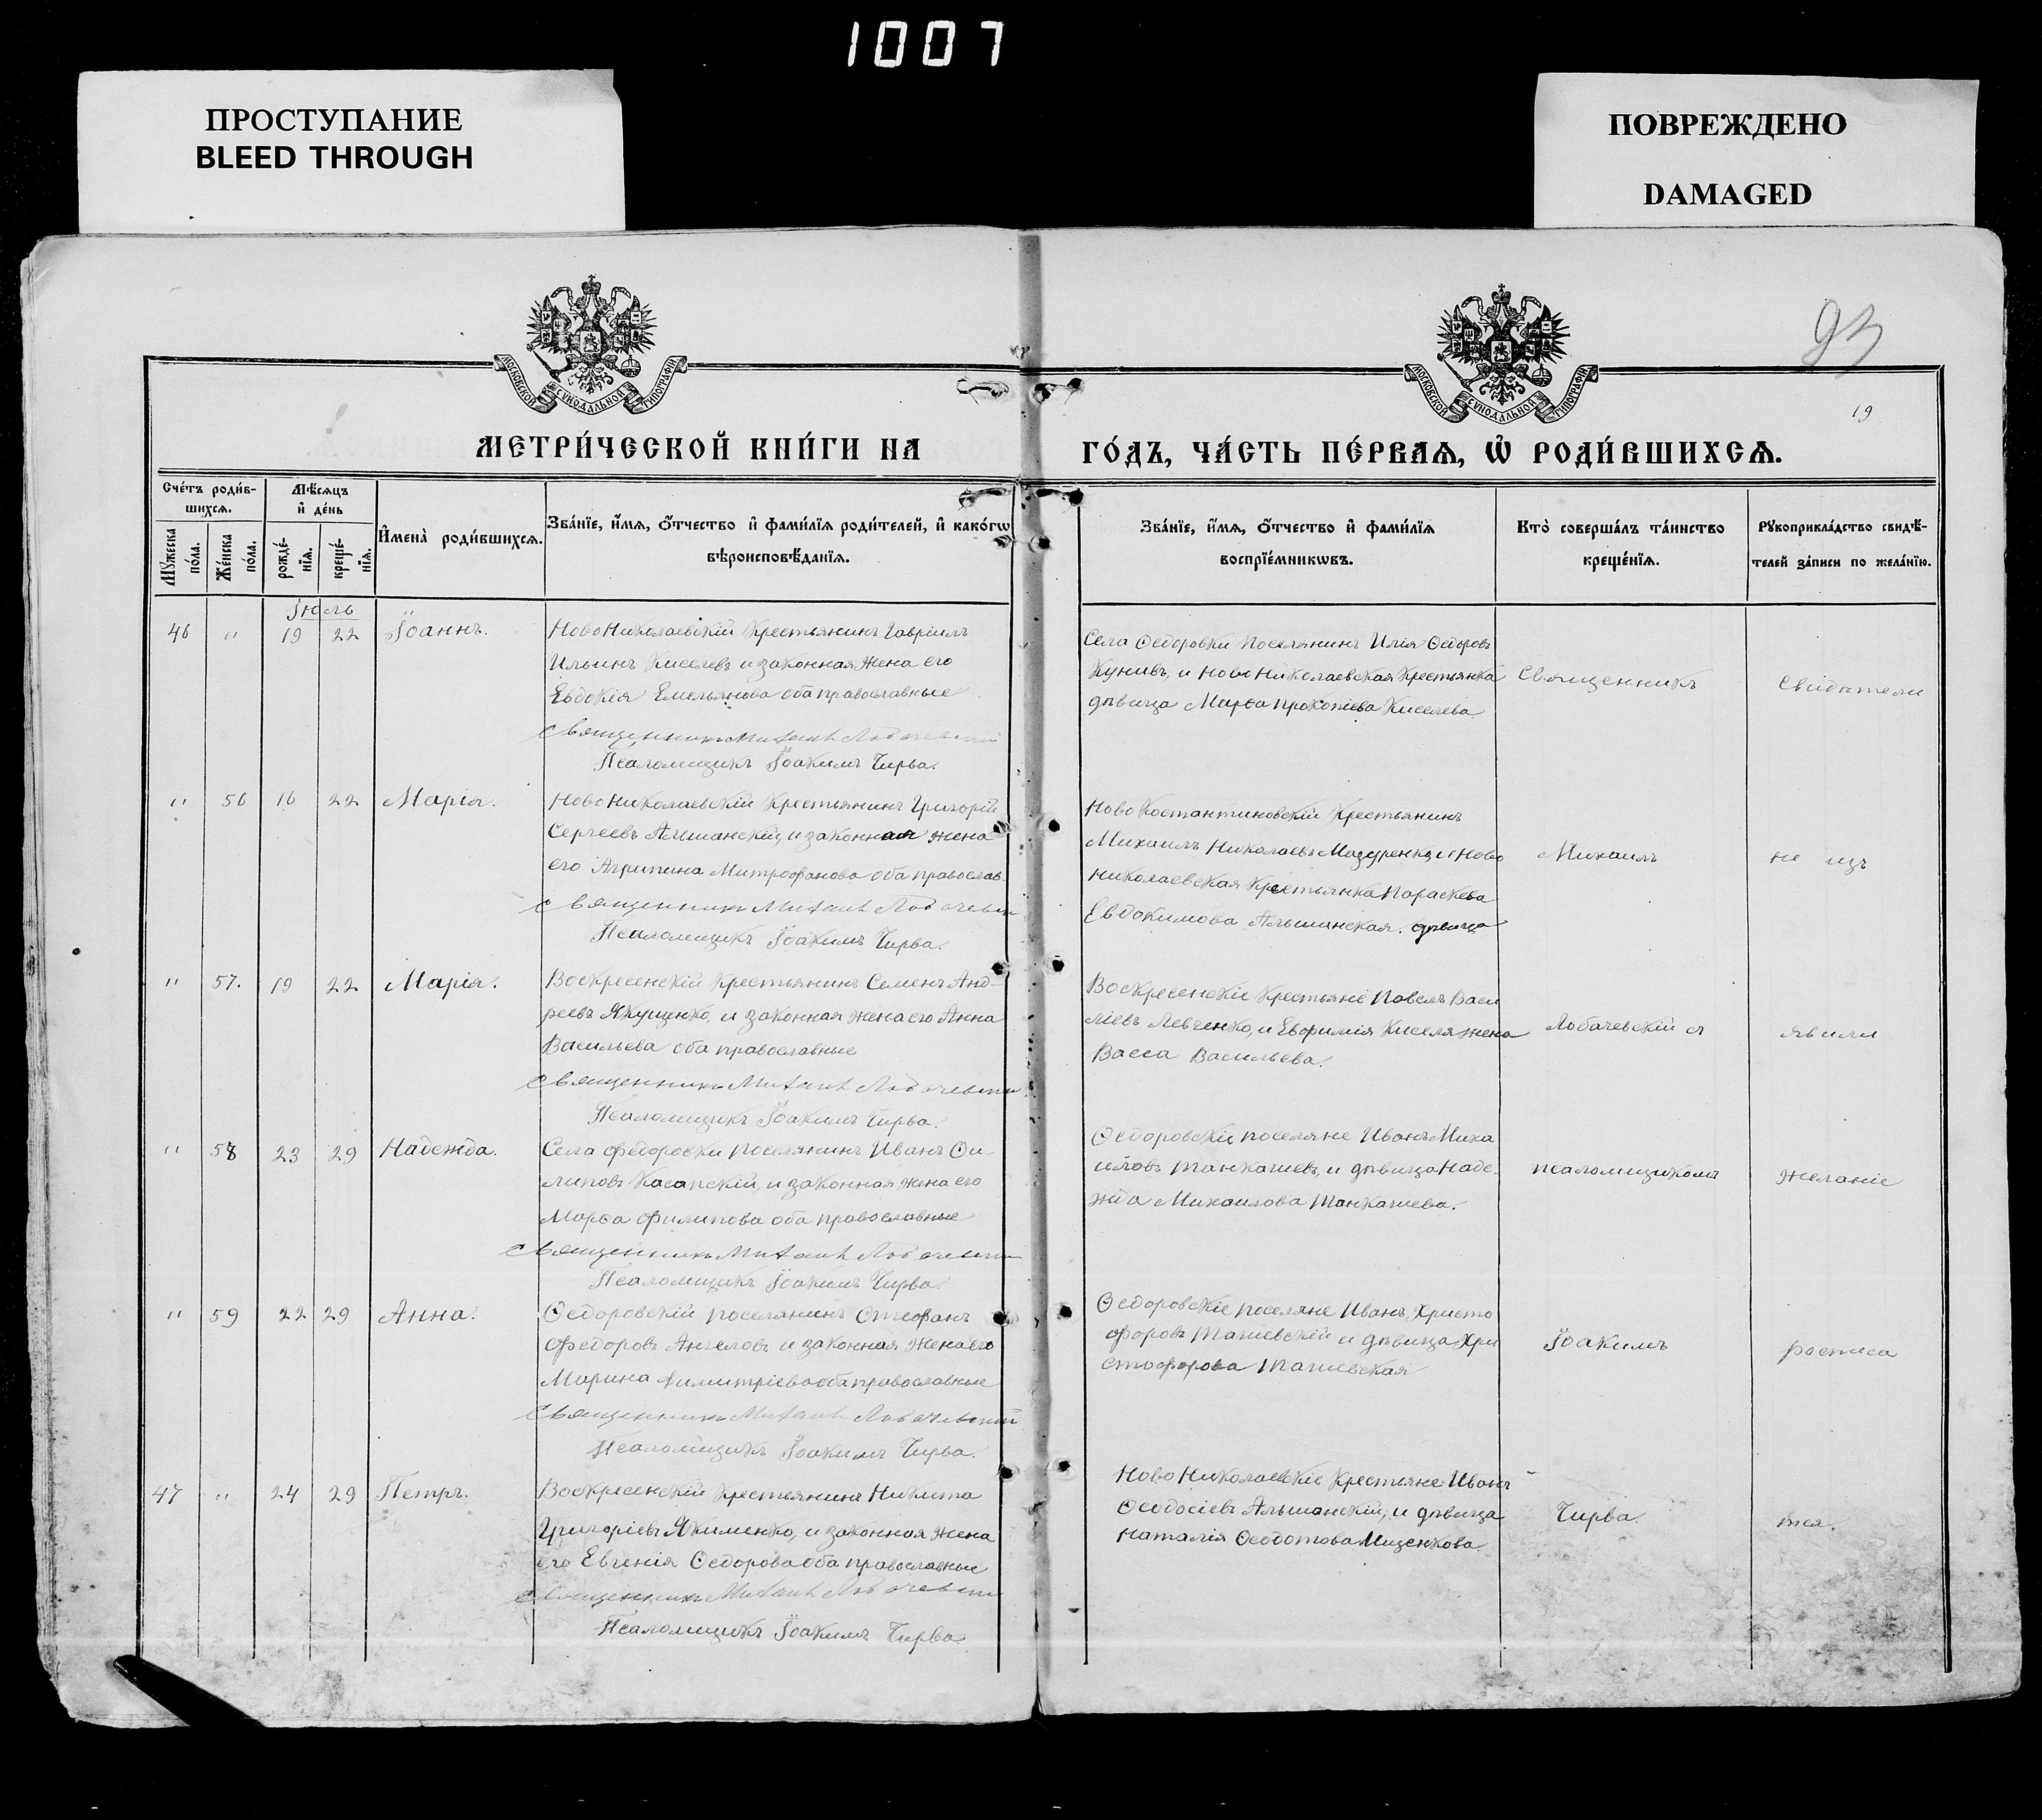 1007
ПРОСТУПАНИЕ
BLEED THROUGH
ПОВРЕЖДЕНО
DAMAGED
93
19
МОСКОВСКОЙ СѴНОДАЛЬНОЙ ТИПОГРАФІИ
МОСКОВСКОЙ СѴНОДАЛЬНОЙ ТИПОГРАФІИ
МЕТРИ́ЧЕСКОЙ КНИ́ГИ НА
ГО́ДЪ, ЧА́СТЬ ПЕ́РВАѦ, Ѿ РОДИ́ВШИХСѦ.
Сче́тъ роди́в-
шихсѧ.
Мѣ́сѧцъ
и҆ де́нь
Мꙋ́жеска
по́ла.
Же́нска
по́ла.
рожде́-
нїѧ.
креще́-
нїѧ.
И҆мена̀ роди́вшихсѧ.
Зва́нїе, и҆́мѧ, ѻ҆́тчество и҆ фами́лїѧ роди́телей, и҆ како́гѡ
вѣроисповѣ́данїѧ.
Зва́нїе, и҆́мѧ, ѻ҆́тчество и҆ фами́лїѧ
воспрїе́мникѡвъ.
Кто̀ соверша́лъ та́инство
креще́нїѧ.
Рꙋкоприкла́дство свидѣ́-
телей за́писи по жела́нїю.
Іюль
46 " 19 22 Іоаннъ.
НовоНиколаевскій Крестьянинъ Гавріилъ
Ильинъ Киселевъ и законная жена его
Евдокія Емельянова оба православные
Священникъ Михаилъ Лобачевский
Псаломщикъ Іоакимъ Чирва.
Села Ѳедоровки Поселянинъ Илія Ѳедоровъ
Кунивъ, и НовоНиколаевская Крестьянка
дѣвица Марѳа Прокопіева Киселева.
Священникъ
Свідѣтели
" 56 16 22 Марія.
НовоНиколаевскій Крестьянинъ Григорій
Сергеевъ Альшанскій, и законная жена
его Агрипина Митрофанова оба православ.
Священникъ Михаилъ Лобачевский
Псаломщикъ Іоакимъ Чирва.
Ново Костантиновскій Крестьянинъ
Михаилъ Николаевъ Мазуренко и Ново
Николаевская Крестьянка Параскева
Евдокимова Альшанская. дѣвица
Михаилъ
не изъ
" 57. 19 22 Марія.
Воскресенскій Крестьянинъ Семенъ Анд-
реевъ Якущенко, и законная жена его Анна
Васильева оба православные
Священникъ Михаилъ Лобачевский
Псаломщикъ Іоакимъ Чирва.
Воскресенскіе Крестьяне Павелъ Васи
ліевъ Левченко, и Евфимія Киселя жена
Васса Васильева.
Лобачевскій с
явили
" 58 23 29 Надежда.
Села Федоровки поселянинъ Иванъ Фи-
липовъ Касапскій, и законная жена его
Марѳа Филипова оба православные
Священникъ Михаилъ Лобачевский
Псаломщикъ Іоакимъ Чирва.
Ѳедоровскіе поселяне Иванъ Миха
иловъ Танкашевъ, и дѣвица Наде-
жда Михаилова Танкашева.
псаломщикомъ
желаніе
" 59 22 29 Анна.
Ѳедоровскій поселянинъ Стефанъ
Федоровъ Ангеловъ и законная жена его
Марина Димитріева оба православные
Священникъ Михаилъ Лобачевский
Псаломщикъ Іоакимъ Чирва.
Ѳедоровскіе поселяне Иванъ Христо
форовъ Ташевскій и дѣвица Хри
стофорова Ташевская
Іоакимъ
росписа
47 " 24 29 Петръ.
Воскресенскій Крестьянинъ Никита
Григоріевъ Якименко, и законная жена
его Евгенія Ѳедорова оба православные
Священникъ Михаилъ Лобачевский
Псаломщикъ Іоакимъ Чирва
НовоНиколаевскіе Крестьяне Иванъ
Ѳеодосіевъ Альшанскій, и дѣвица
Наталія Ѳеодотова Мищенкова.
Чирва.
тся.